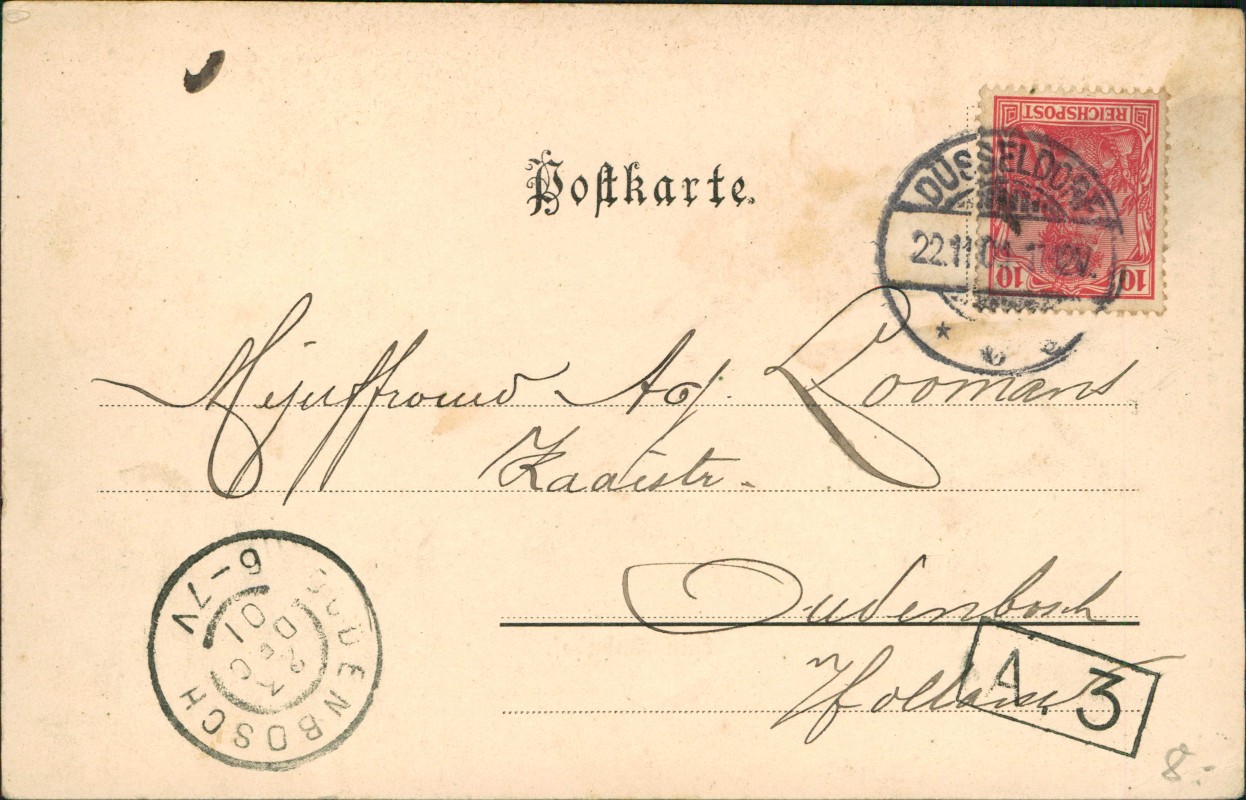 Postkarte.
REICHSPOST
10 10
DÜSSELDORF
22.11.01
Mejuffrouw Ag. Loomans
Kaaistr.
Oudenbosch
Holland
OUDENBOSCH
6-7V
01
A. 3
8.-